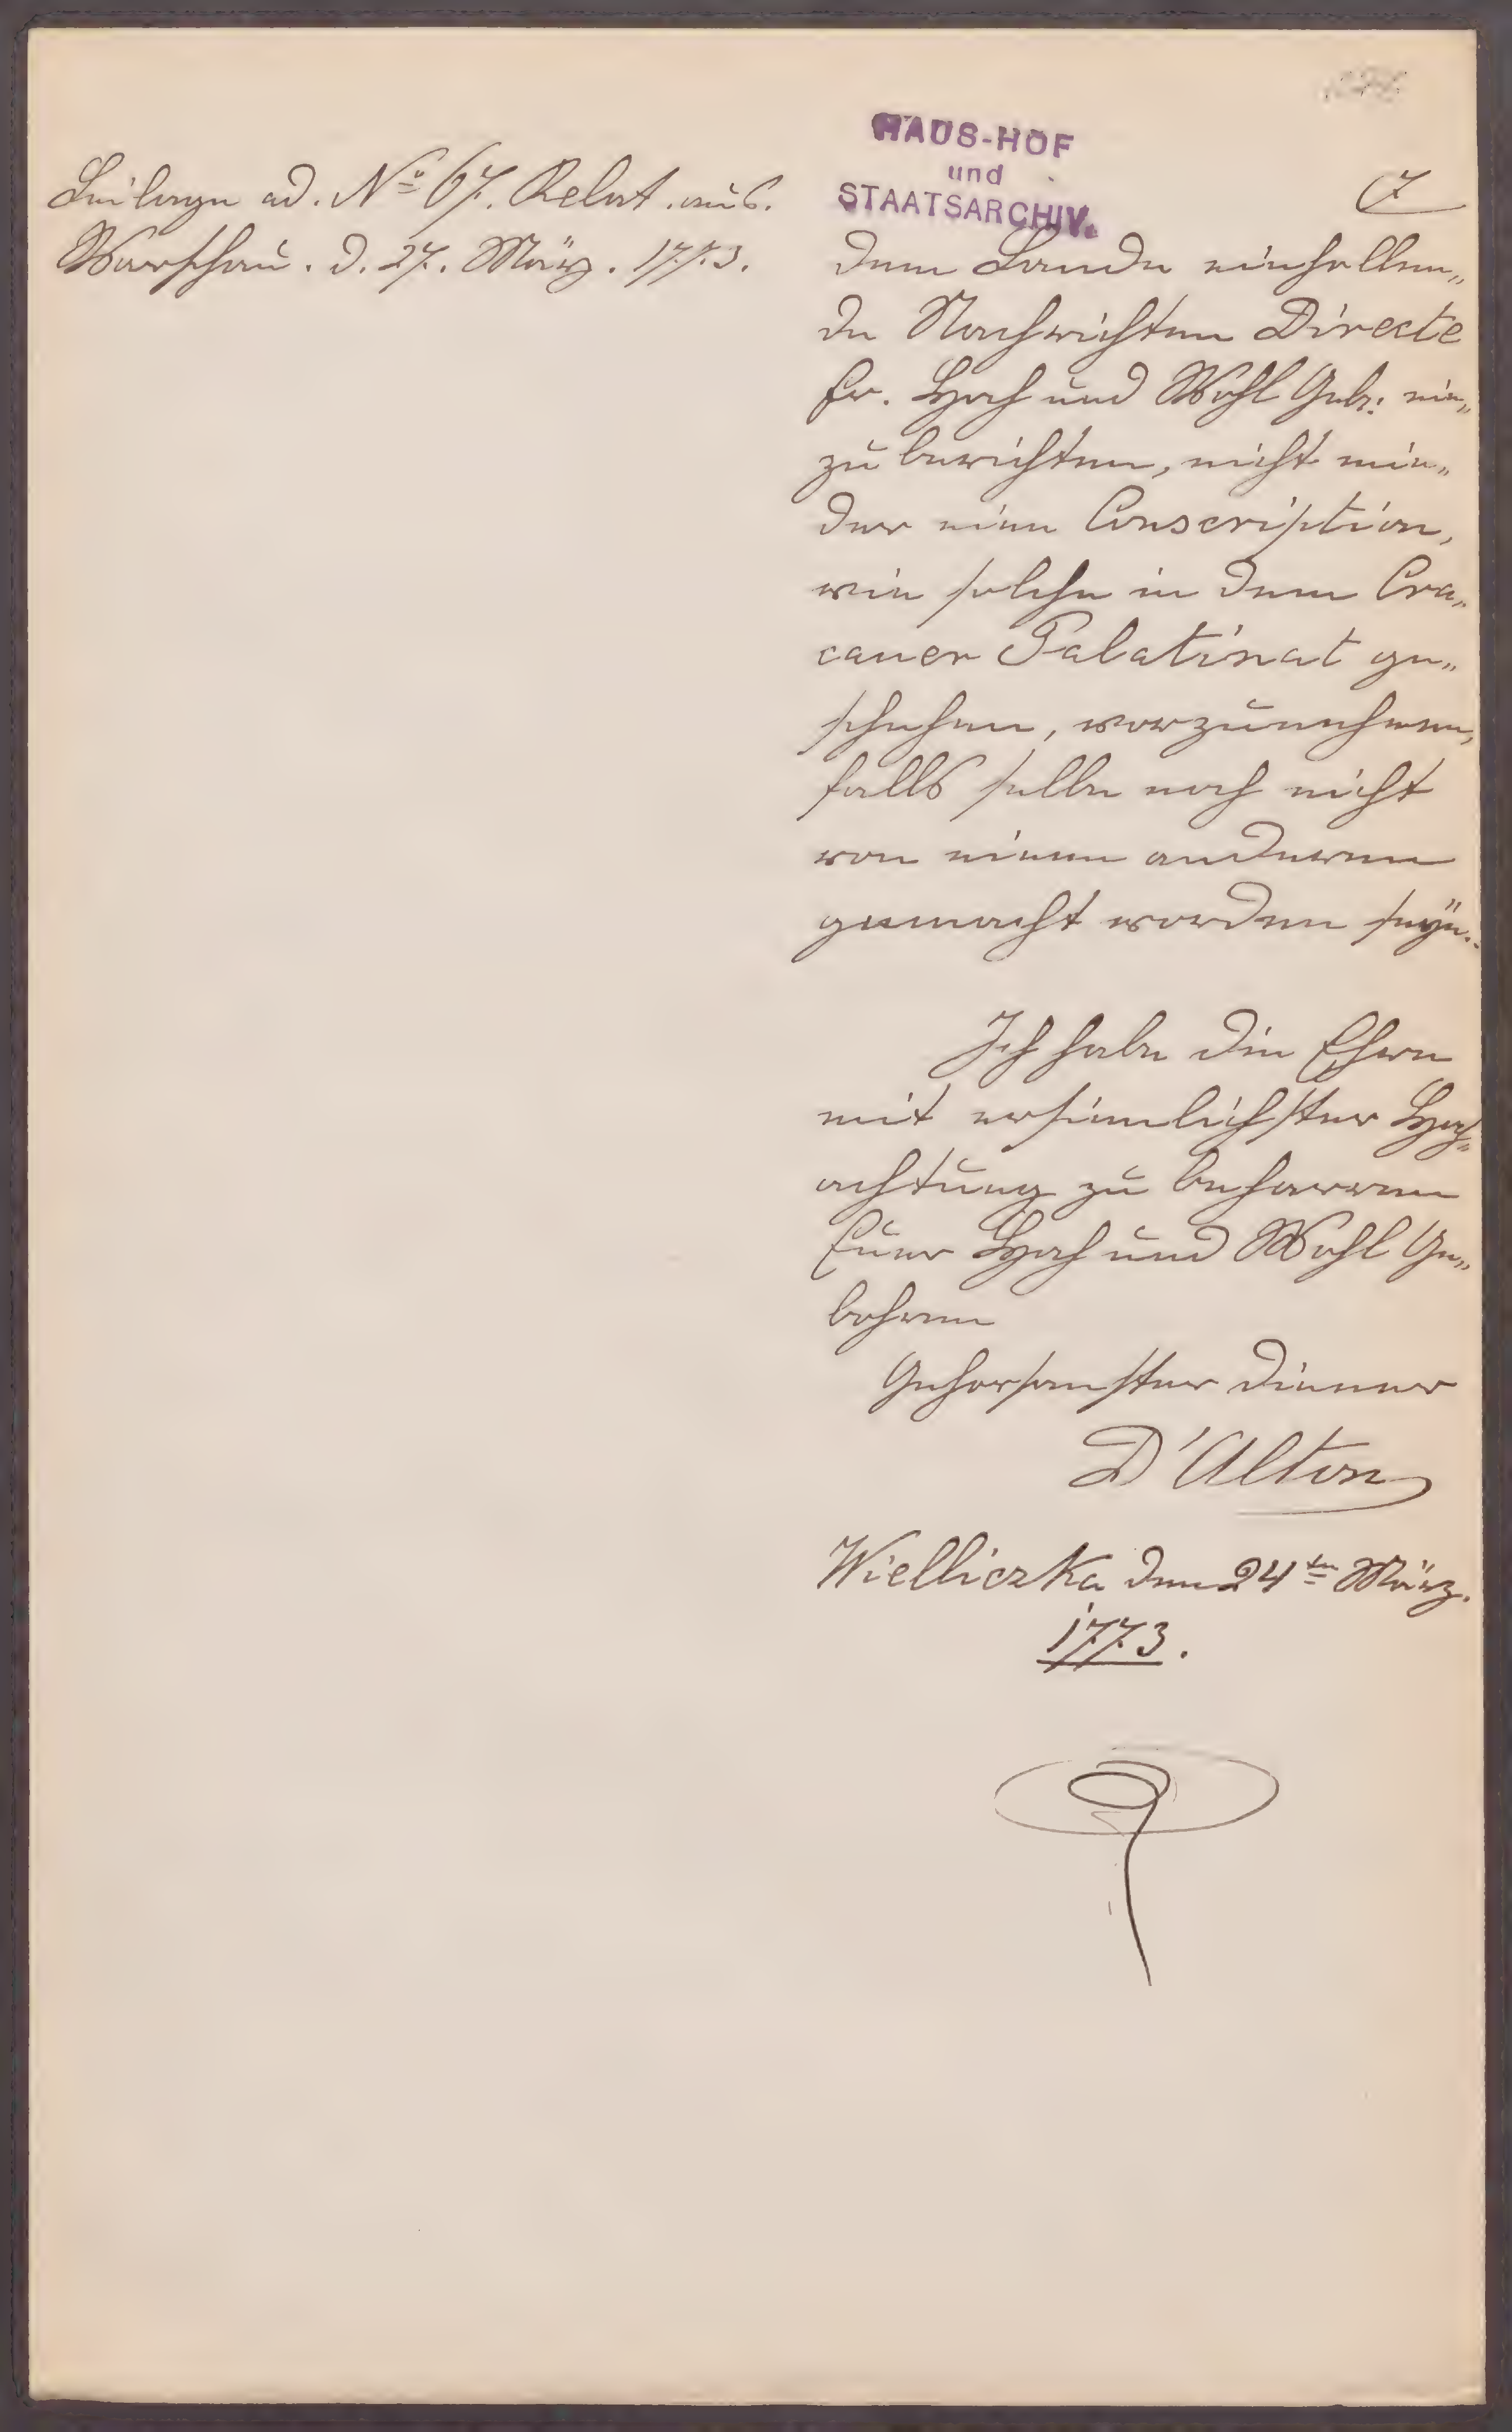 HAUS-HOF
und
STAATSARCHIV.
7
Beilage ad. No 67. Relat. aus.
Warschau. d. 27. März. 1773.
dem Lande einhollen„
de Nachrichten Directe
Er. Hoch und Wohl Geb: ein„
zu berichten, nicht min„
der eine Conscription,
wie solche in dem Cra„
cauer Palatinat ge„
schehen, vorzunehmen,
falls selbe noch nicht
von einem anderen
gemacht worden seÿe.
Ich habe die Ehre
mit ersinnlichster Hoch„
achtung zu beharren
Euer Hoch und Wohl Ge„
bohren
Gehorsamster Diener
D'Alton
Wielliczka den 24ten März.
1773.